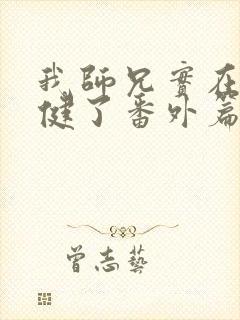 我師兄實在
健了番外篇
曾志藝